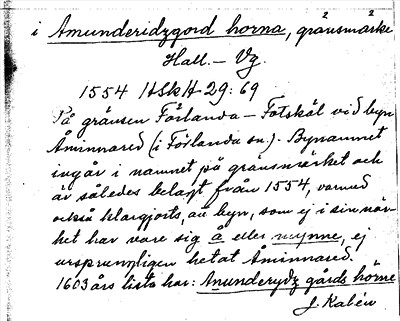 i Amunderidzgord horna, gränsmärke
Hall. – Vg.
1554 HSkH 29:69
På gränsen Förlanda – Fotskäl vid byn
Åminnared (i Förlanda sn.). Bynamnet
ingår i namnet på gränsmärket och
är således belagt från 1554, varmed
också klargjorts, att byn, som ej i sin när-
het har vare sig å eller mynne, ej
ursprungligen hetat Åminnared.
1603 års lista har: Anunderydz gårds hörne
J. Kalén